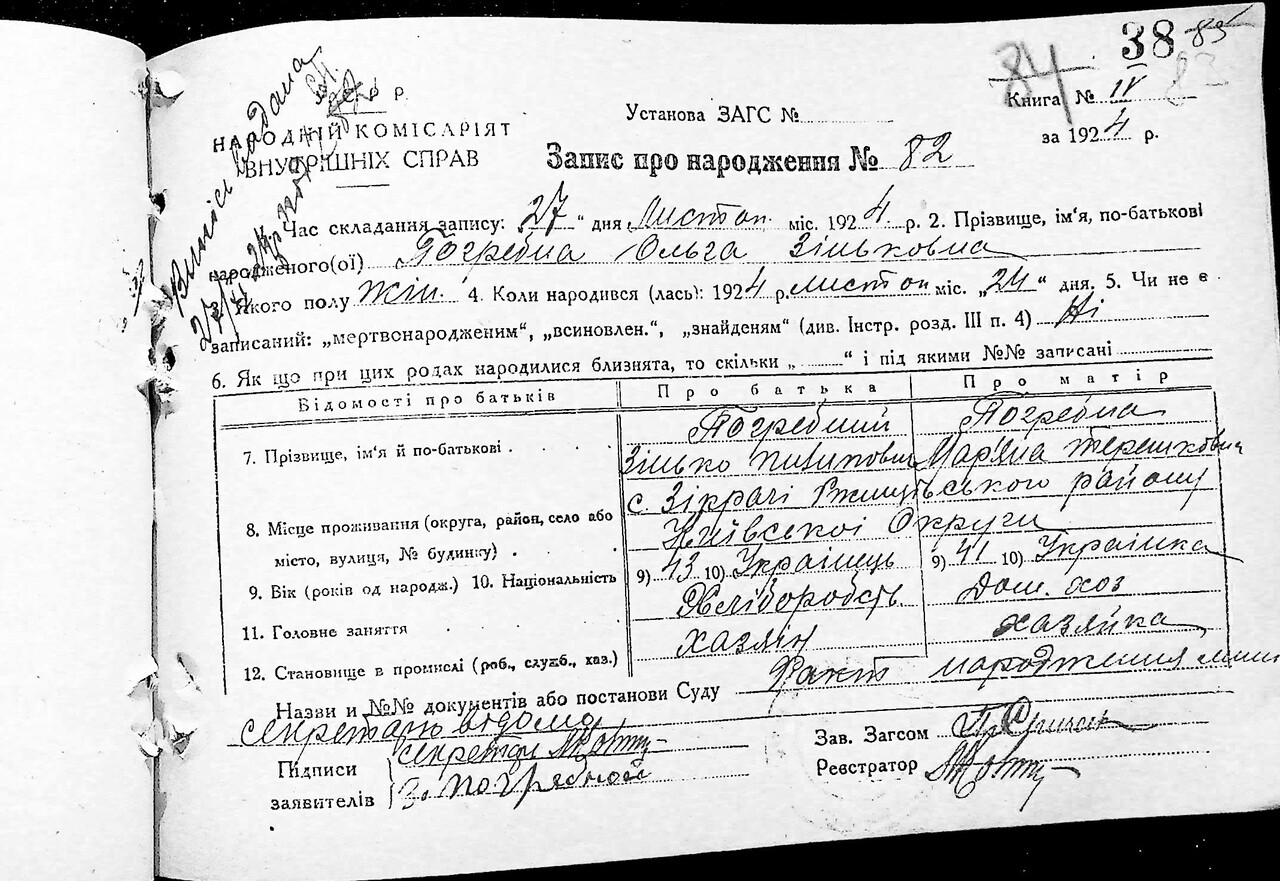 38 85
84 83
Р Р
НАРОДНІЙ КОМІСАРІЯТ
ВНУТРІШНІХ СПРАВ
Випись видана
Установа ЗАГС №
Книга № IV
за 1924 р.
Запис про народження № 82
Час складання запису: 27 " дня Листоп. міс. 1924 р. 2. Прізвище, ім'я, по-батькові
народженого(ої) Погребна Ольга Зіньковна
Якого полу Жін. 4. Коли народився (лась): 1924 р. листоп міс. „24" дня. 5. Чи не є
записаний: „мертвонародженим", „всиновлен.", „знайденям" (див. Інстр. розд. III п. 4) Ні
6. Як що при цих родах народилися близнята, то скільки „ " і під якими №№ записані
Відомості про батьків Про батька Про матір
7. Прізвище, ім'я й по-батькові Погребний Погребна
Зінько Мар'яна Терешковна
8. Місце проживання (округа, район, село або с. Зікрачі Ржищівського району
місто, вулиця, № будинку) Київської Округи
9. Вік (років од народж.) 10. Національність 9) 43 10) Українець 9) 41 10) Українка
11. Головне заняття Хліборобств. Дом. хоз
12. Становище в промислі (роб., служб., хаз.) хазяїн хазяйка
Назви и №№ документів або постанови Суду Факт народження мині
секретарю відома
Підписи секретар
заявителів З. Погрябной
Зав. Загсом
Реєстратор